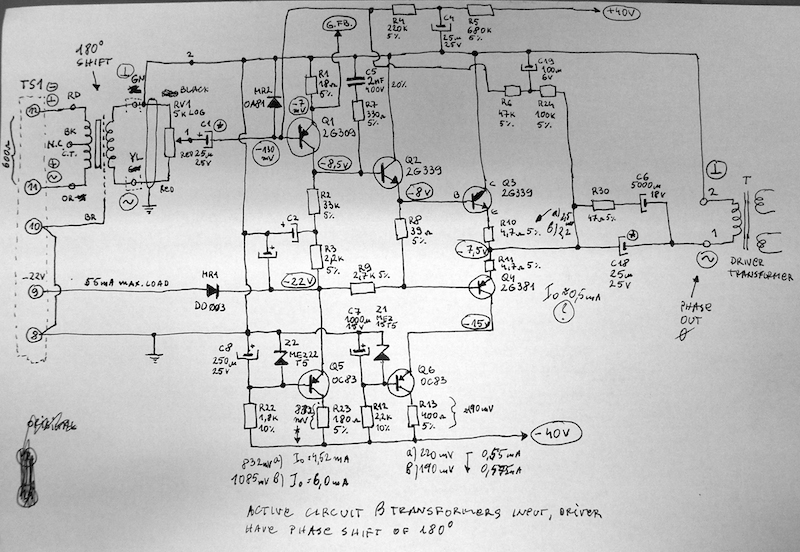 180°
SHIFT
TS1
12
RD
BK
N.C
C.T.
11
OR
600Ω
10
BR
-22V
9
8
55mA MAX. LOAD
MR1
DD003
GN
YL
BLACK
RV1
5K LOG
RED
1
2
C1
25µ
25V
MR2
OA81
-130
mV
G.FB.
R1
18Ω
5%
-7
mV
Q1
2G309
C5
2nF
400V
20%
R7
330Ω
5%
-8,5V
R2
33K
5%
C2
R3
2,2K
5%
-22V
R4
220K
5%
C4
25µ
25V
R5
680K
5%
+40V
Q2
2G339
-8V
R8
39Ω
5%
R9
2,7K 5%
R6
47K
5%
C19
100µ
6V
R24
100K
5%
Q3
2G339
B
C
E
R10
4,7Ω 5%
-7,5V
R11
4,7Ω 5%
Q4
2G381
-15V
R30
47Ω 5%
C6
5000µ
18V
C18
25µ
25V
2
1
T
DRIVER
TRANSFORMER
PHASE
OUT
C8
250µ
25V
Z2
MEZ22
T5
Q5
OC83
R22
1,8K
10%
832
mV
R23
180Ω
5%
C7
1000µ
15V
Z1
MEZ
15T5
Q6
OC83
R12
2,2K
10%
R13
400Ω
5%
190mV
-40V
832mV a) I₀=4,52mA
1085mV b) I₀=6,0mA
a) 220mV 0,55mA
b) 190mV
ORIGINAL
ACTIVE CIRCUIT β TRANSFORMERS INPUT, DRIVER
HAVE PHASE SHIFT OF 180°